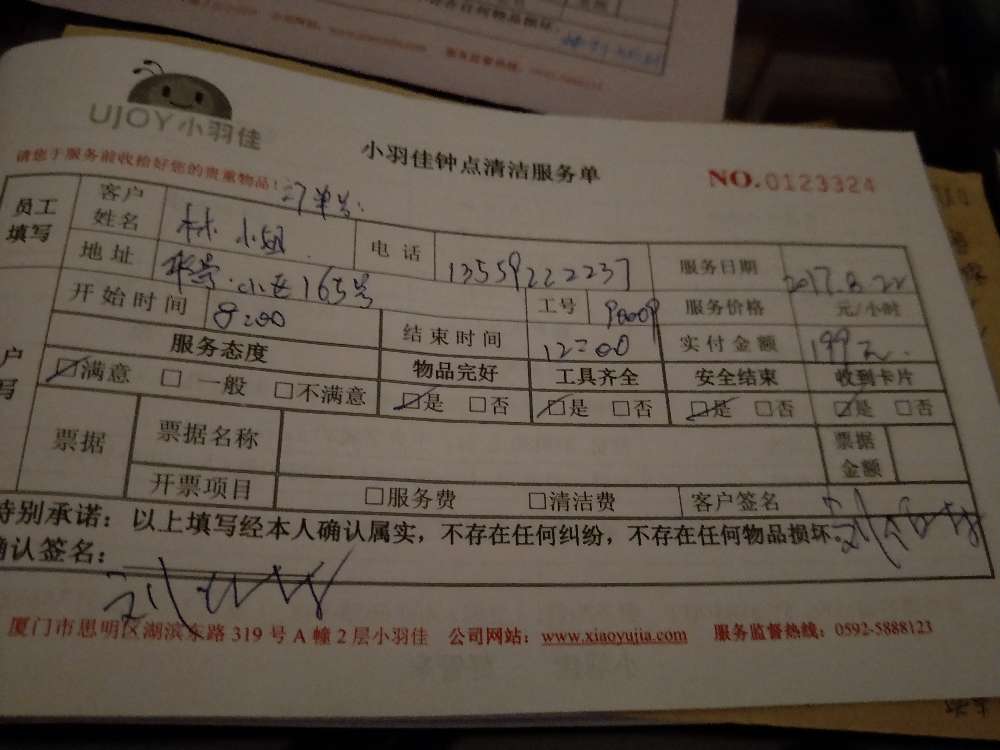 UJOY小羽佳
小羽佳钟点清洁服务单
NO.0123324
请您于服务前收拾好您的贵重物品!
订单号:
员工填写 客户姓名 林小姐 电话 13559222237 服务日期 2017.8.22
地址 华景小区165号 工号 90009 服务价格 元/小时
开始时间 8:00 结束时间 12:00 实付金额 199元
服务态度 物品完好 工具齐全 安全结束 收到卡片
满意 □一般 □不满意 是 □否 是 □否 是 □否 是 □否
票据 票据名称 票据金额
开票项目 □服务费 □清洁费 客户签名
特别承诺:以上填写经本人确认属实,不存在任何纠纷,不存在任何物品损坏。
确认签名:
厦门市思明区湖滨东路319号A幢2层小羽佳 公司网站:www.xiaoyujia.com 服务监督热线:0592-5888123